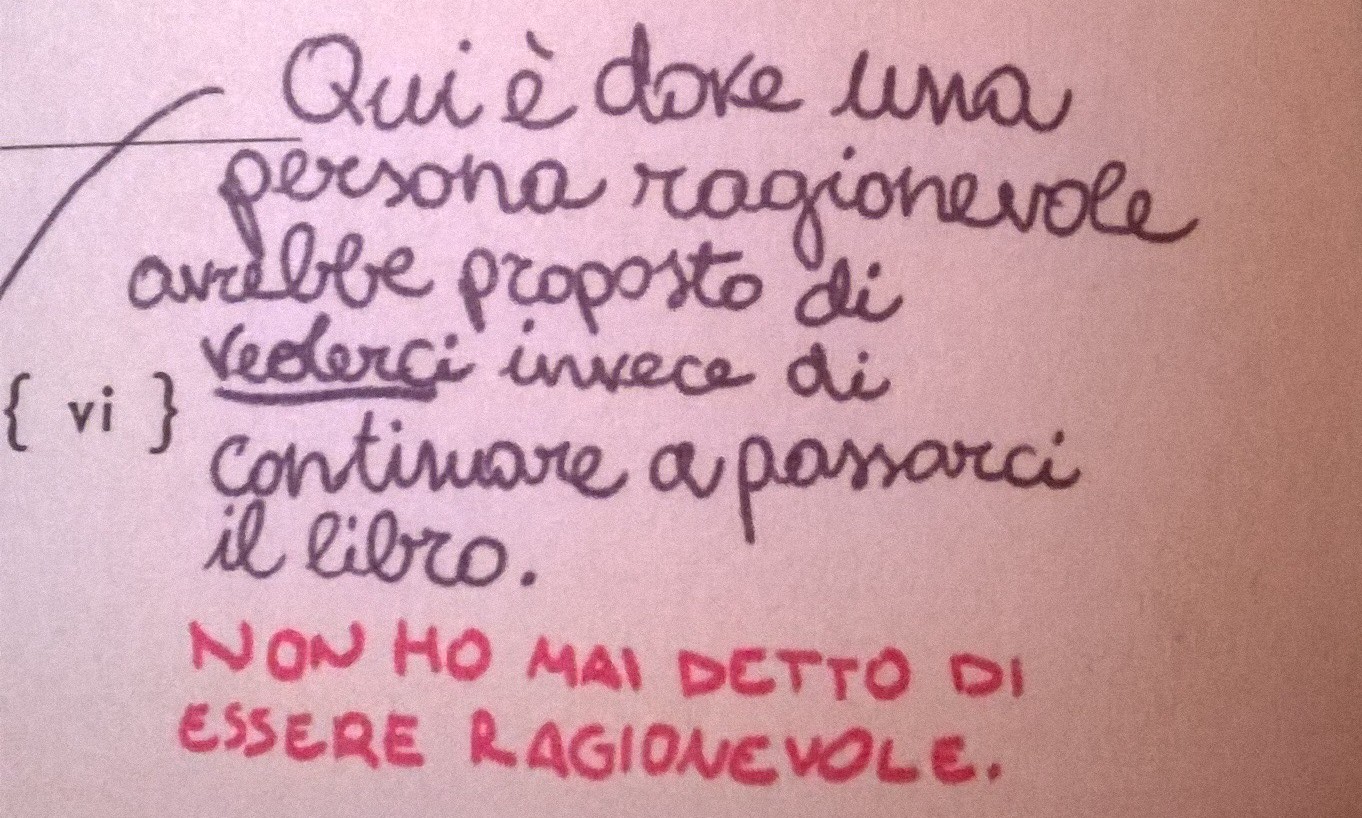 Qui è dove una
persona ragionevole
avrebbe proposto di
vederci invece di
{ vi }
continuare a passarci
il libro.
NON HO MAI DETTO DI
ESSERE RAGIONEVOLE.